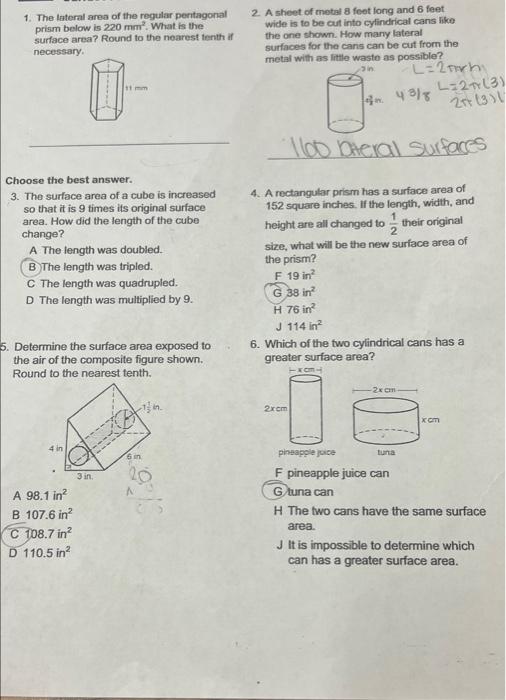 1. The lateral area of the regular pentagonal
prism below is 220 mm². What is the
surface area? Round to the nearest tenth if
necessary.
11 mm
2. A sheet of metal 8 feet long and 6 feet
wide is to be cut into cylindrical cans like
the one shown. How many lateral
surfaces for the cans can be cut from the
metal with as little waste as possible?
L=2πrh
4 3/8 L=2π(3)
2π(3)(
1100 lateral surfaces
Choose the best answer.
3. The surface area of a cube is increased
so that it is 9 times its original surface
area. How did the length of the cube
change?
A The length was doubled.
B The length was tripled.
C The length was quadrupled.
D The length was multiplied by 9.
4. A rectangular prism has a surface area of
152 square inches. If the length, width, and
height are all changed to 1/2 their original
size, what will be the new surface area of
the prism?
F 19 in²
G 38 in²
H 76 in²
J 114 in²
5. Determine the surface area exposed to
the air of the composite figure shown.
Round to the nearest tenth.
4 in
3 in.
6 in.
20
A 98.1 in²
B 107.6 in²
C 108.7 in²
D 110.5 in²
6. Which of the two cylindrical cans has a
greater surface area?
x cm
2x cm
2x cm
x cm
pineapple juice
tuna
F pineapple juice can
G tuna can
H The two cans have the same surface
area.
J It is impossible to determine which
can has a greater surface area.